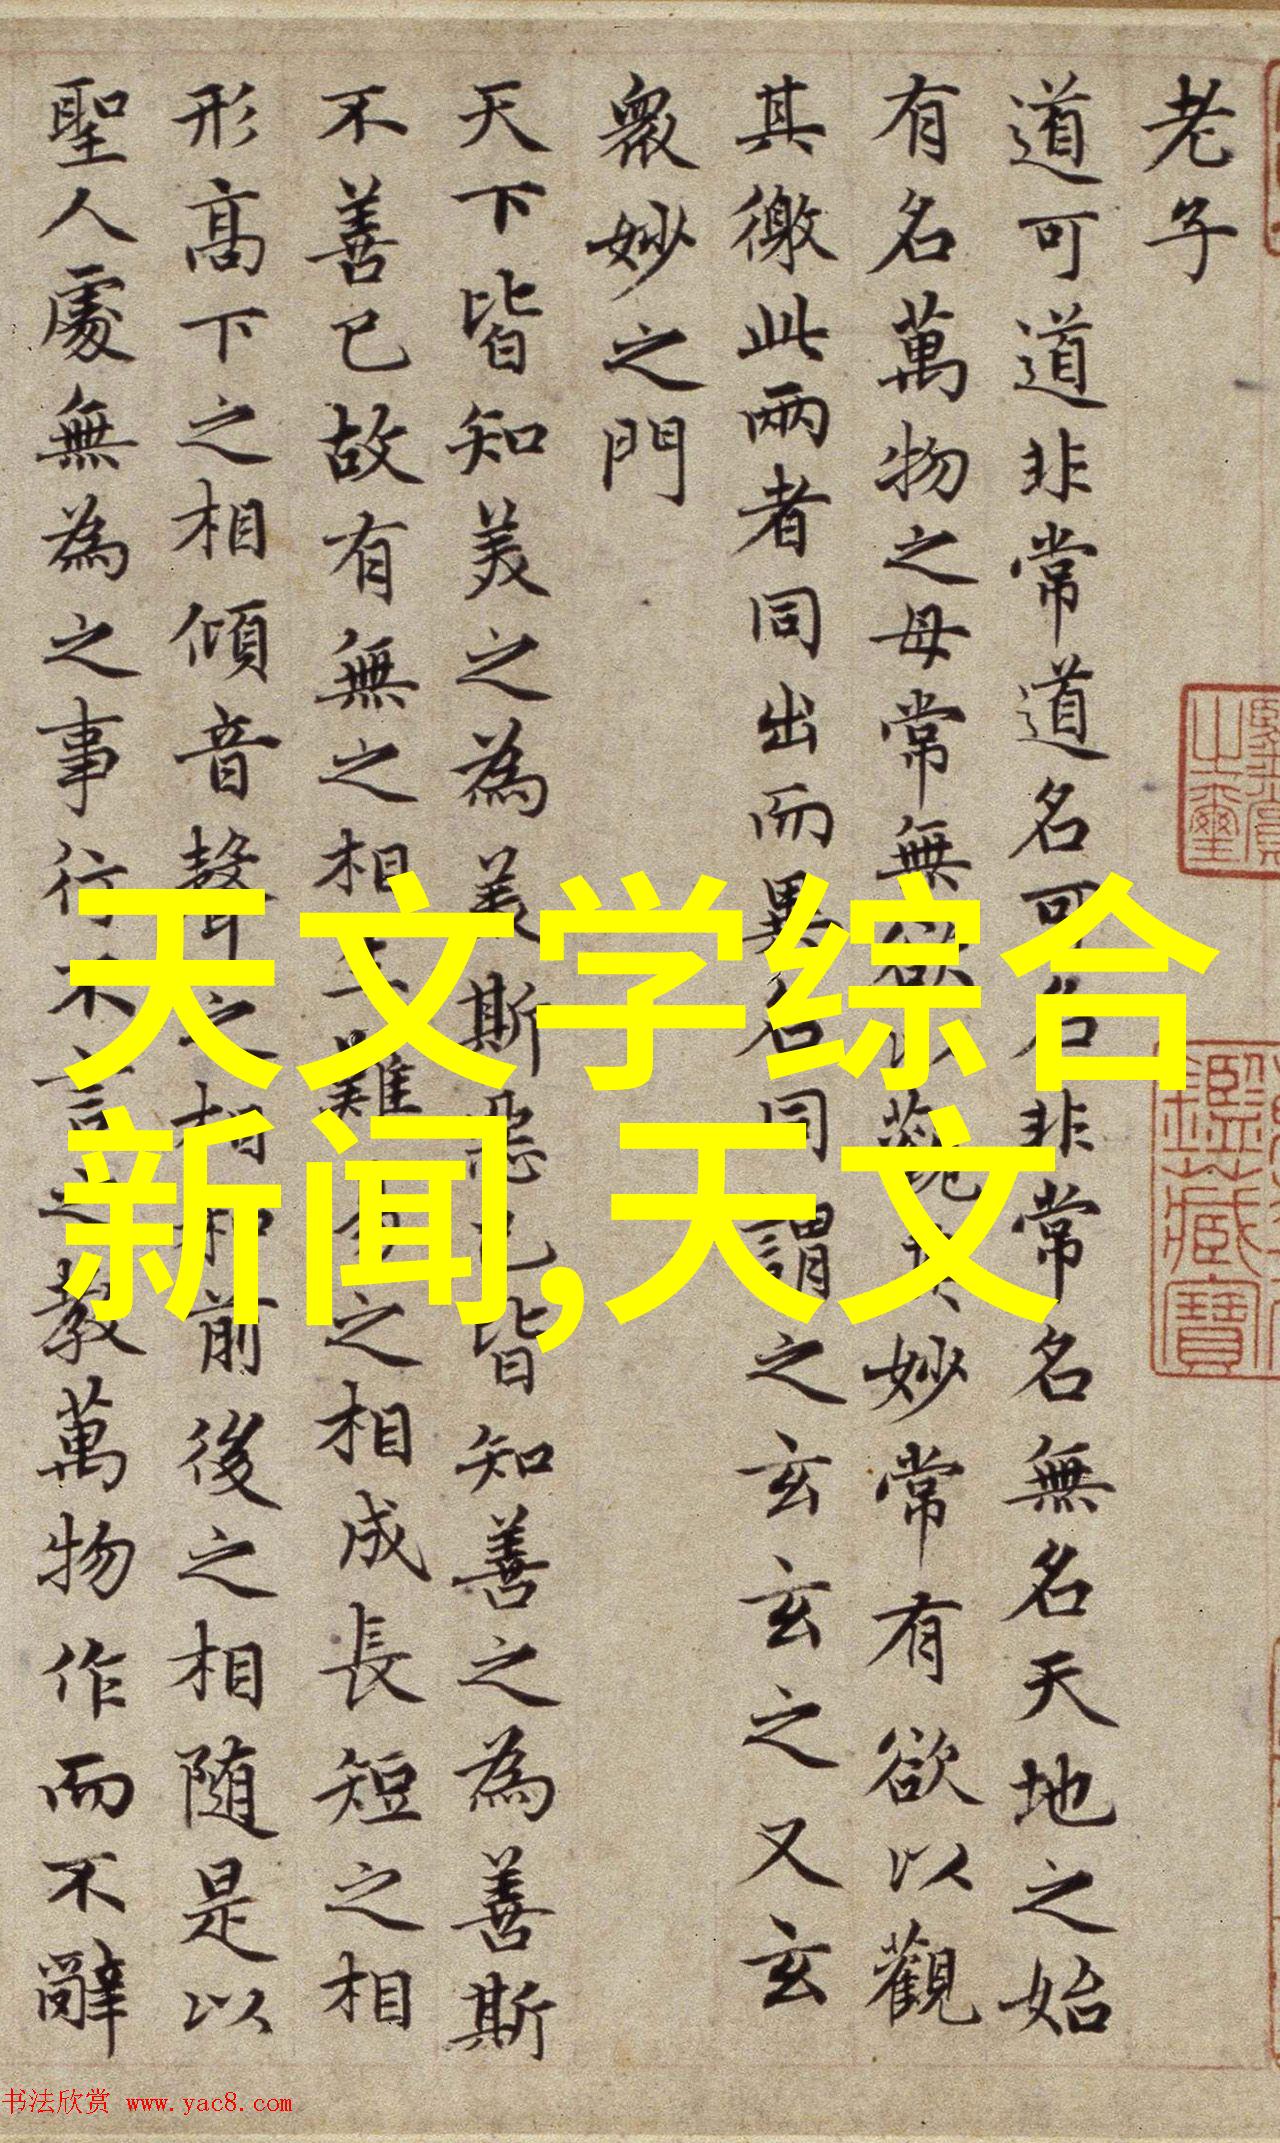 老子
道可道非常道名可名非常名無名天地之始
有名萬物之母常無欲以觀其妙常有欲以觀
其徼此兩者同出而異名同謂之玄玄之又玄
衆妙之門
天下皆知美之為美斯惡已皆知善之為善斯
不善已故有無之相生難易之相成長短之相
形高下之相傾音聲之相和前後之相随是以
聖人處無為之事行不言之教萬物作而不辭
天文学综合
新闻,天文
书法欣赏 www.yac8.com